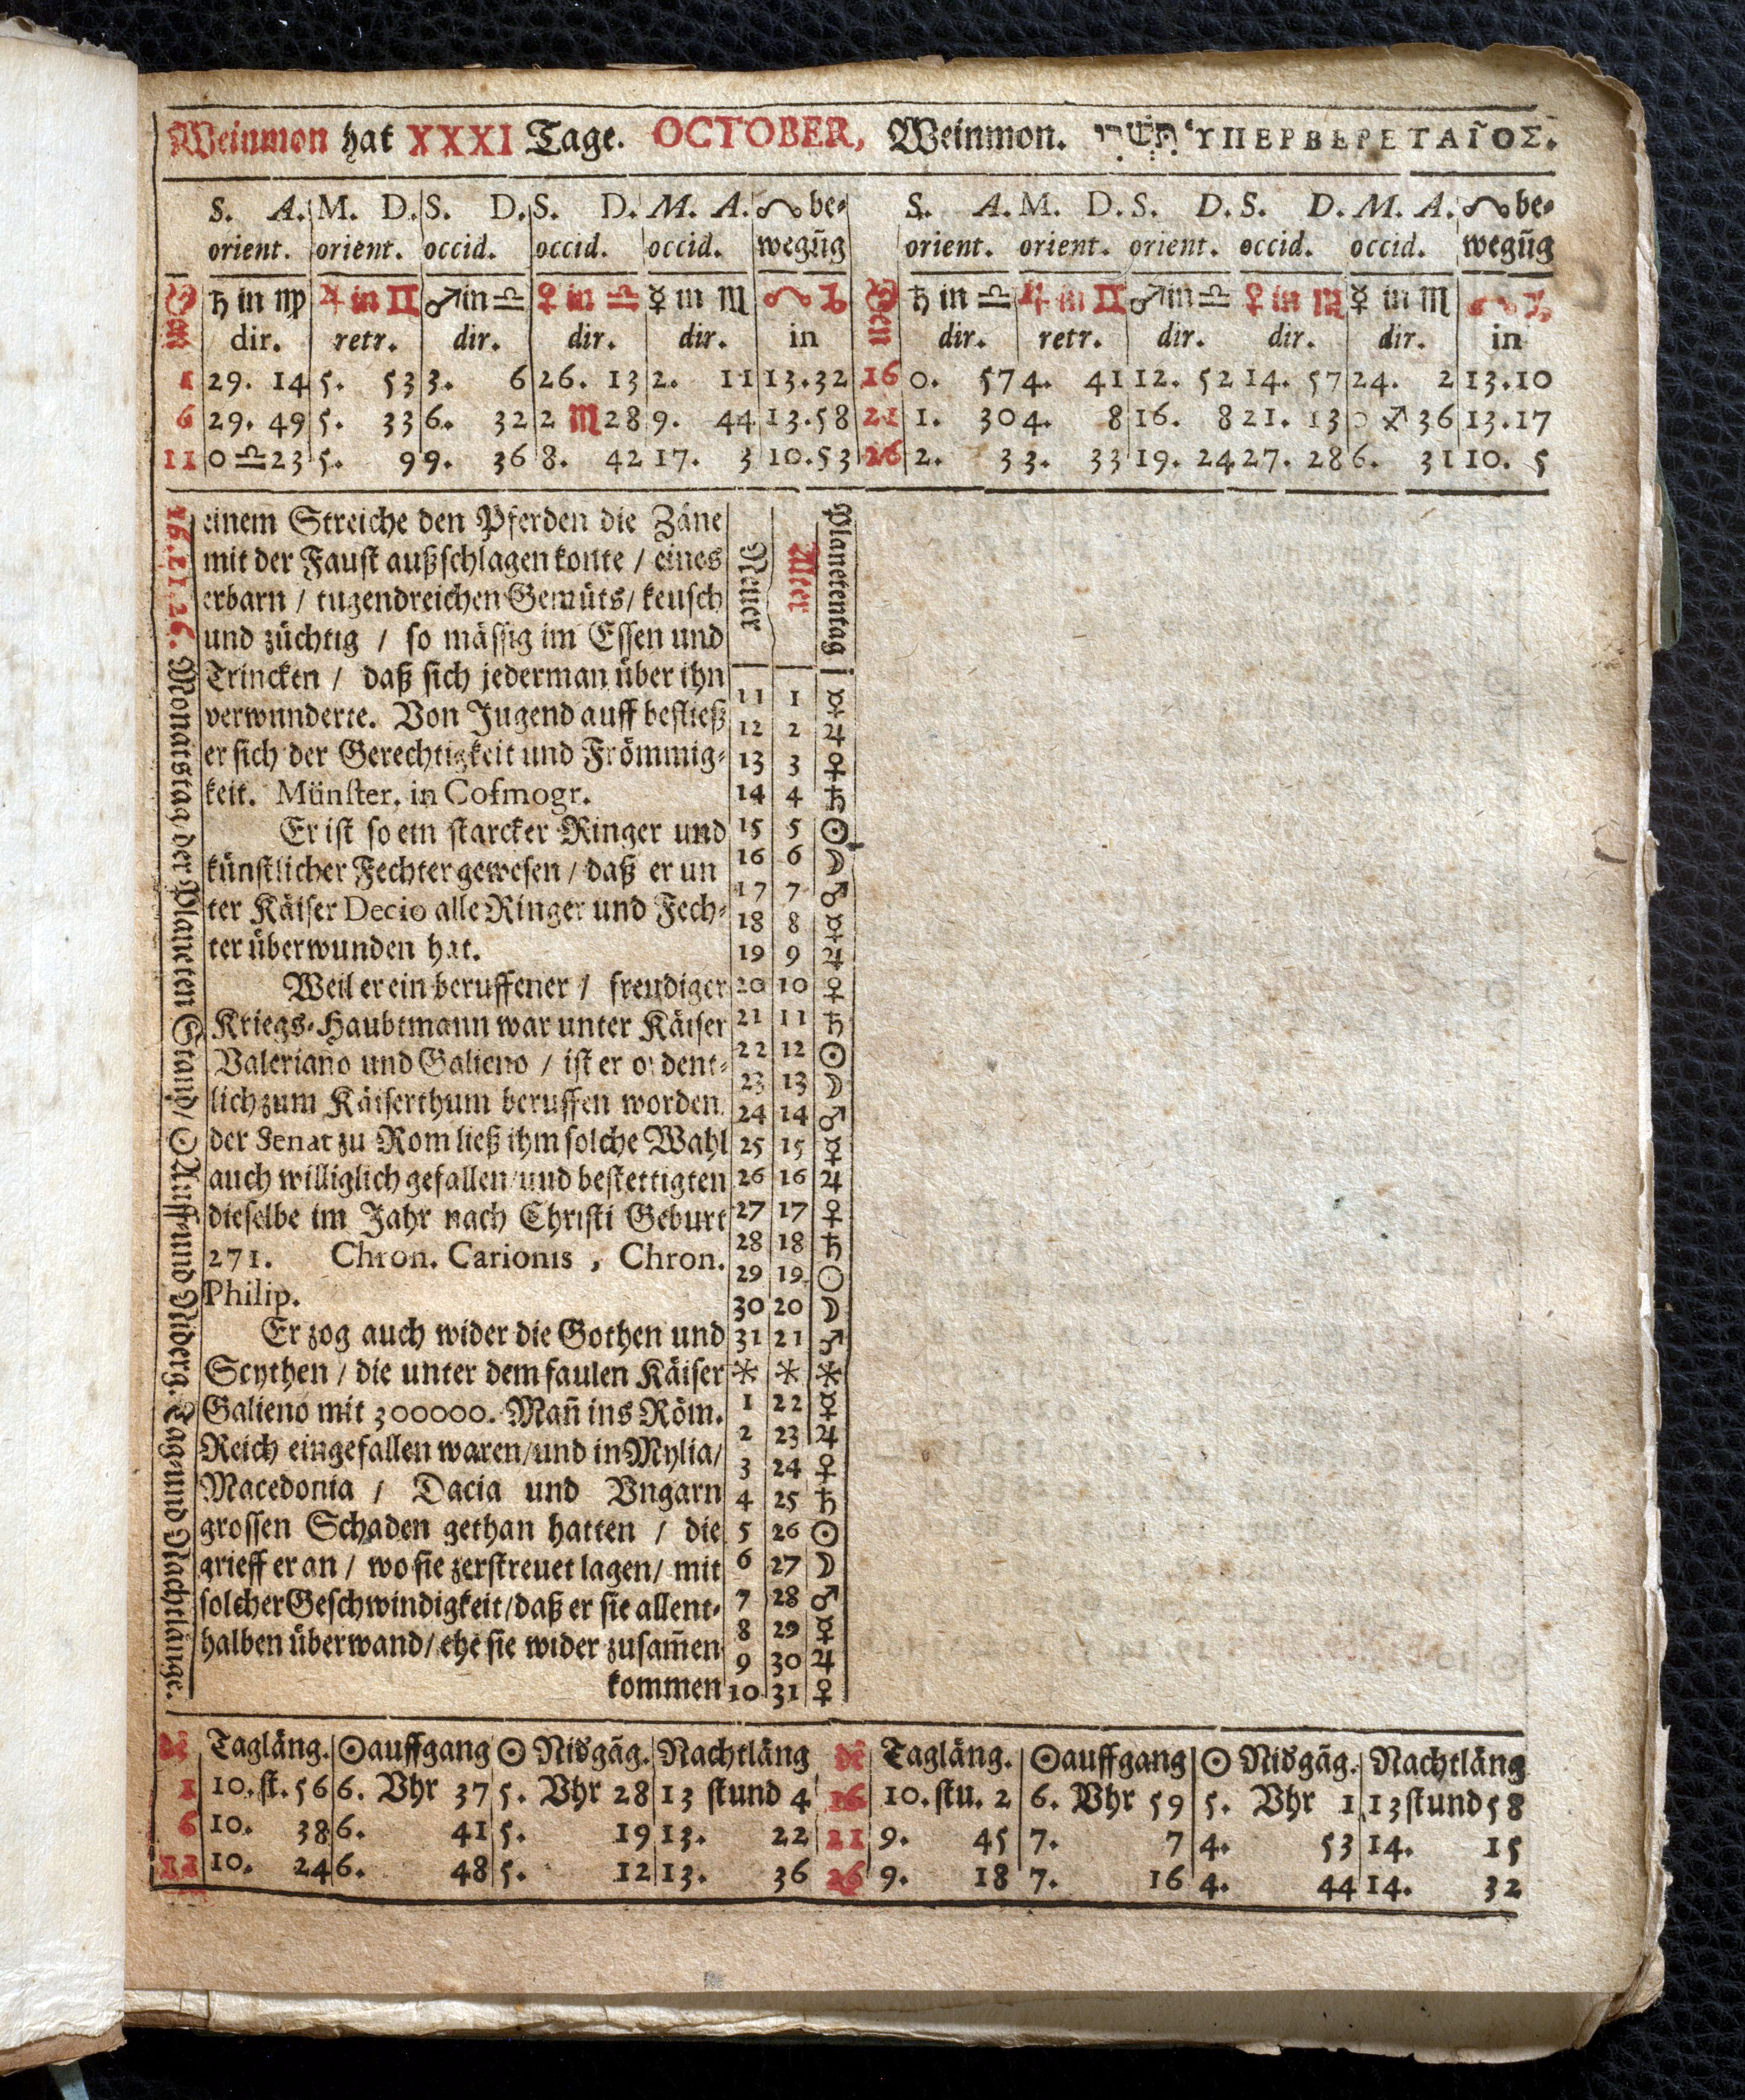 Weinmon hat XXXI Tage. OCTOBER, Weinmon. תִּשְׁרִי ὙΠΕΡΒΕΡΕΤΑῖΟΣ.
S. A. M. D. S. D. S. D. M. A. ☊ be⸗ S. A. M. D. S. D. S. D. M. A. ☊ be⸗
orient. orient. occid. occid. occid. wegūg orient. orient. orient. occid. occid. wegūg
Den ♄ in ♍ ♃ in ♊ ♂ in ♎ ♀ in ♎ ☿ in ♏ ☊ ♑ Den ♄ in ♎ ♃ in ♊ ♂ in ♎ ♀ in ♏ ☿ in ♏ ☊ ♑
dir. retr. dir. dir. dir. in dir. retr. dir. dir. dir. in
1 29. 14 5. 53 3. 6 26. 13 2. 11 13.32 16 0. 57 4. 41 12. 52 14. 57 24. 2 13.10
6 29. 49 5. 33 6. 32 2 ♏ 28 9. 44 13.58 21 1. 30 4. 8 16. 8 21. 13 0 ♐ 36 13.17
11 0 ♎ 23 5. 9 9. 36 8. 42 17. 3 10.53 26 2. 3 3. 33 19. 24 27. 28 6. 31 10. 5
16. 21. 26. Monatstag der Planeten Stand / ☉ Auff⸗und Niderg. Tag⸗und Nachtlänge.
einem Streiche den Pferden die Zäne
mit der Faust außschlagen konte / eines
erbarn / tugendreichen Gemüts / keusch
und züchtig / so mässig im Essen und
Trincken / daß sich jederman über ihn
verwunderte. Von Jugend auff befließ
er sich der Gerechtigkeit und Frömmig⸗
keit. Münster. in Cosmogr.
Er ist so ein starcker Ringer und
künstlicher Fechter gewesen / daß er un
ter Käiser Decio alle Ringer und Fech⸗
ter überwunden hat.
Weil er ein beruffener / freudiger
Kriegs⸗Haubtmann war unter Käiser
Valeriano und Galieno / ist er ordent⸗
lich zum Käiserthum beruffen worden.
der Senat zu Rom ließ ihm solche Wahl
auch williglich gefallen / und bestettigten
dieselbe im Jahr nach Christi Geburt
271. Chron. Carionis , Chron.
Philip.
Er zog auch wider die Gothen und
Scythen / die unter dem faulen Käiser
Galieno mit 300000. Mañ ins Röm.
Reich eingefallen waren / und in Mylia /
Macedonia / Dacia und Vngarn
grossen Schaden gethan hatten / die
grieff er an / wo sie zerstreuet lagen / mit
solcher Geschwindigkeit / daß er sie allent⸗
halben überwand / ehe sie wider zusam̃en
kommen
Neuer Alter Planetentag
11 1 ☿
12 2 ♃
13 3 ♀
14 4 ♄
15 5 ☉
16 6 ☽
17 7 ♂
18 8 ☿
19 9 ♃
20 10 ♀
21 11 ♄
22 12 ☉
23 13 ☽
24 14 ♂
25 15 ☿
26 16 ♃
27 17 ♀
28 18 ♄
29 19 ☉
30 20 ☽
31 21 ♂
* * *
1 22 ☿
2 23 ♃
3 24 ♀
4 25 ♄
5 26 ☉
6 27 ☽
7 28 ♂
8 29 ☿
9 30 ♃
10 31 ♀
dē Tagläng. ☉auffgang ☉ Nidgāg. Nachtläng dē Tagläng. ☉auffgang ☉ Nidgāg. Nachtläng
1 10. st. 56 6. Vhr 37 5. Vhr 28 13 stund 4 16 10. stu. 2 6. Vhr 59 5. Vhr 1 13 stund 58
6 10. 38 6. 41 5. 19 13. 22 21 9. 45 7. 7 4. 53 14. 15
11 10. 24 6. 48 5. 12 13. 36 26 9. 18 7. 16 4. 44 14. 32